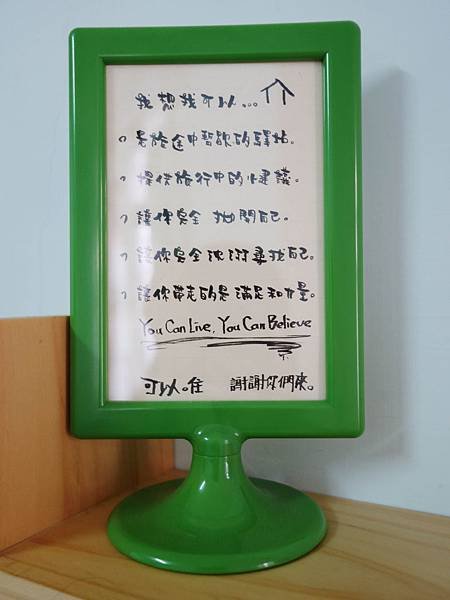 我想我可以...
是旅途中暫歇的驛站。
提供旅行中的小建議。
讓你完全 拋開自己。
讓你完全沈澱尋找自己。
讓你帶走的是滿足和力量。
You Can Live, You Can Believe
可以。住 謝謝你們來。